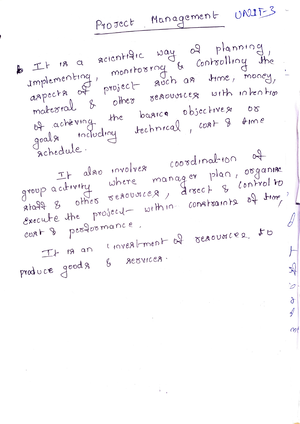 Project Management UNIT-3
It is a scientific way of planning,
implementing, monitoring & controlling the
aspects of project such as time, money,
material & other resources with intention
of achieving the basic objectives or
goals including technical, cost & time
schedule.
It also involves coordination of
group activity where manager plan, organise
staff & other resources, direct & control to
execute the project within constraints of time,
cost & performance.
It is an investment of resources to
produce goods & services.